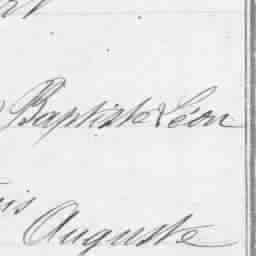 Baptiste Léon
Auguste